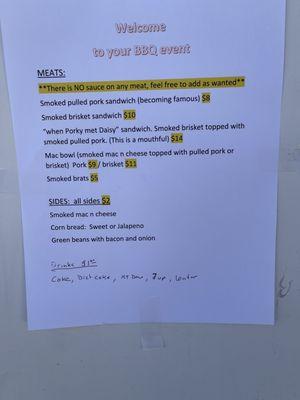 Welcome
to your BBQ event
MEATS:
**There is NO sauce on any meat, feel free to add as wanted**
Smoked pulled pork sandwich (becoming famous) $8
Smoked brisket sandwich $10
"when Porky met Daisy" sandwich. Smoked brisket topped with
smoked pulled pork. (This is a mouthful) $14
Mac bowl (smoked mac n cheese topped with pulled pork or
brisket) Pork $9 / brisket $11
Smoked brats $5
SIDES: all sides $2
Smoked mac n cheese
Corn bread: Sweet or Jalapeno
Green beans with bacon and onion
Drinks $1
Coke, Diet coke, MT Dew, 7up, water